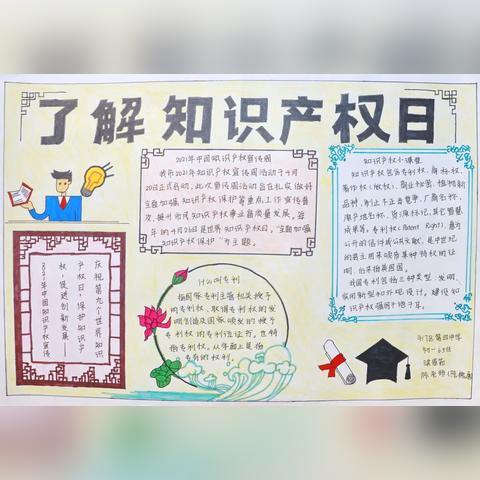 了解知识产权日
2021年中国知识产权宣传周
我市2021年知识产权宣传周活动于4月
20日正式启动，此次宣传周活动旨在扎实做好
主题加强知识产权保护等重点工作宣传普
及，推动市民知识产权事业高质量发展。每
年的4月26日是世界知识产权日，"主题加强
知识产权保护"为主题。
知识产权小课堂
知识产权包括专利权、商标权、
著作权(版权)、商业秘密、植物新
品种、制止不正当竞争、厂商名称、
原产地名称、货源标记、其它智慧
成果等。专利权(Patent Right)，意为
公开的信件或公共文献，是中世纪
的君主用来颁布某种特权的证
明，后来指英国国
我国专利包括三种类型：发明、
实用新型和外观设计。建设知
识产权强国利于炮子耳。
庆祝第九个世界知识
产权日，保护知识产
权，促进创新发展——
2021年中国知识产权宣传
什么叫专利
指国家专利主管机关授予
的专利权、取得专利权的发
明创造及国家颁发的授予
专利权的专利证证书。也特
指专利权，从字面上是指
专有的权利。
江门市第四中学